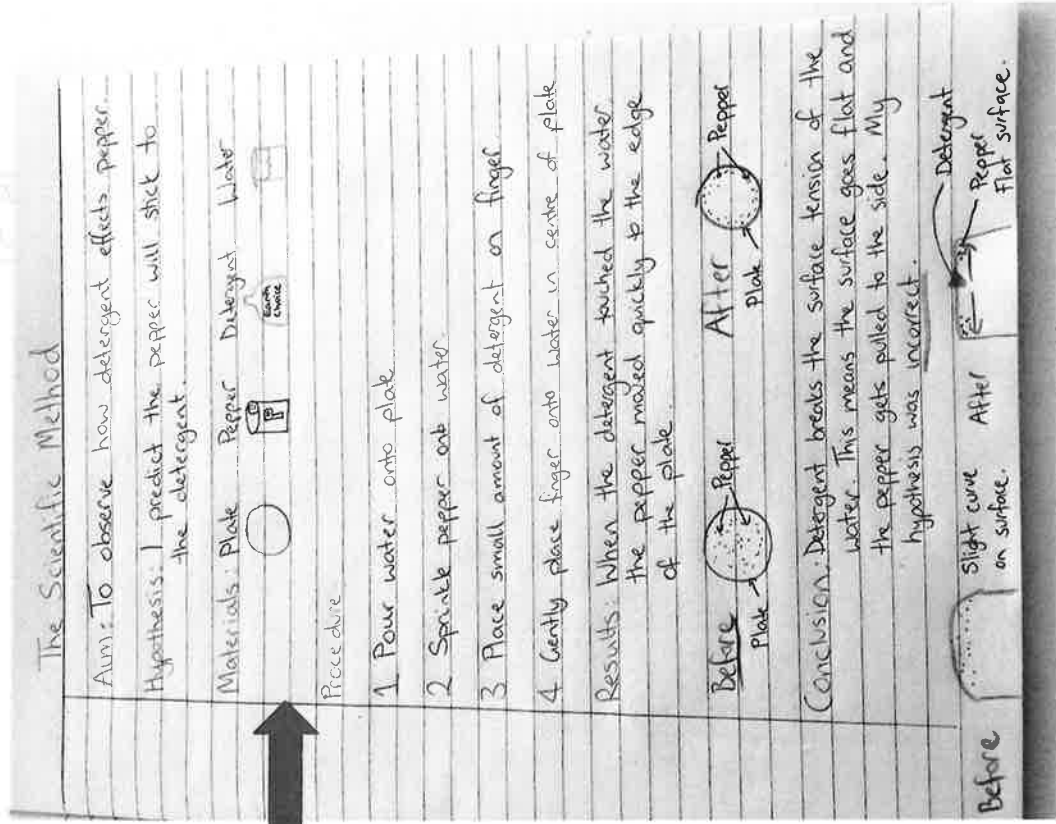 The Scientific Method
Aim: To observe how detergent effects pepper.
Hypothesis: I predict the pepper will stick to
the detergent.
Materials: Plate Pepper Detergent Water
P
Earth
choice
Procedure
1 Pour water onto plate
2 Sprinkle pepper onto water.
3 Place small amount of detergent on finger
4 Gently place finger onto water in centre of plate
Results: When the detergent touched the water
the pepper moved quickly to the edge
of the plate.
Before Pepper After Pepper
Plate Plate
Conclusion: Detergent breaks the surface tension of the
water. This means the surface goes flat and
the pepper gets pulled to the side. My
hypothesis was incorrect.
Before Slight curve
on surface. After Detergent
Pepper
Flat surface.